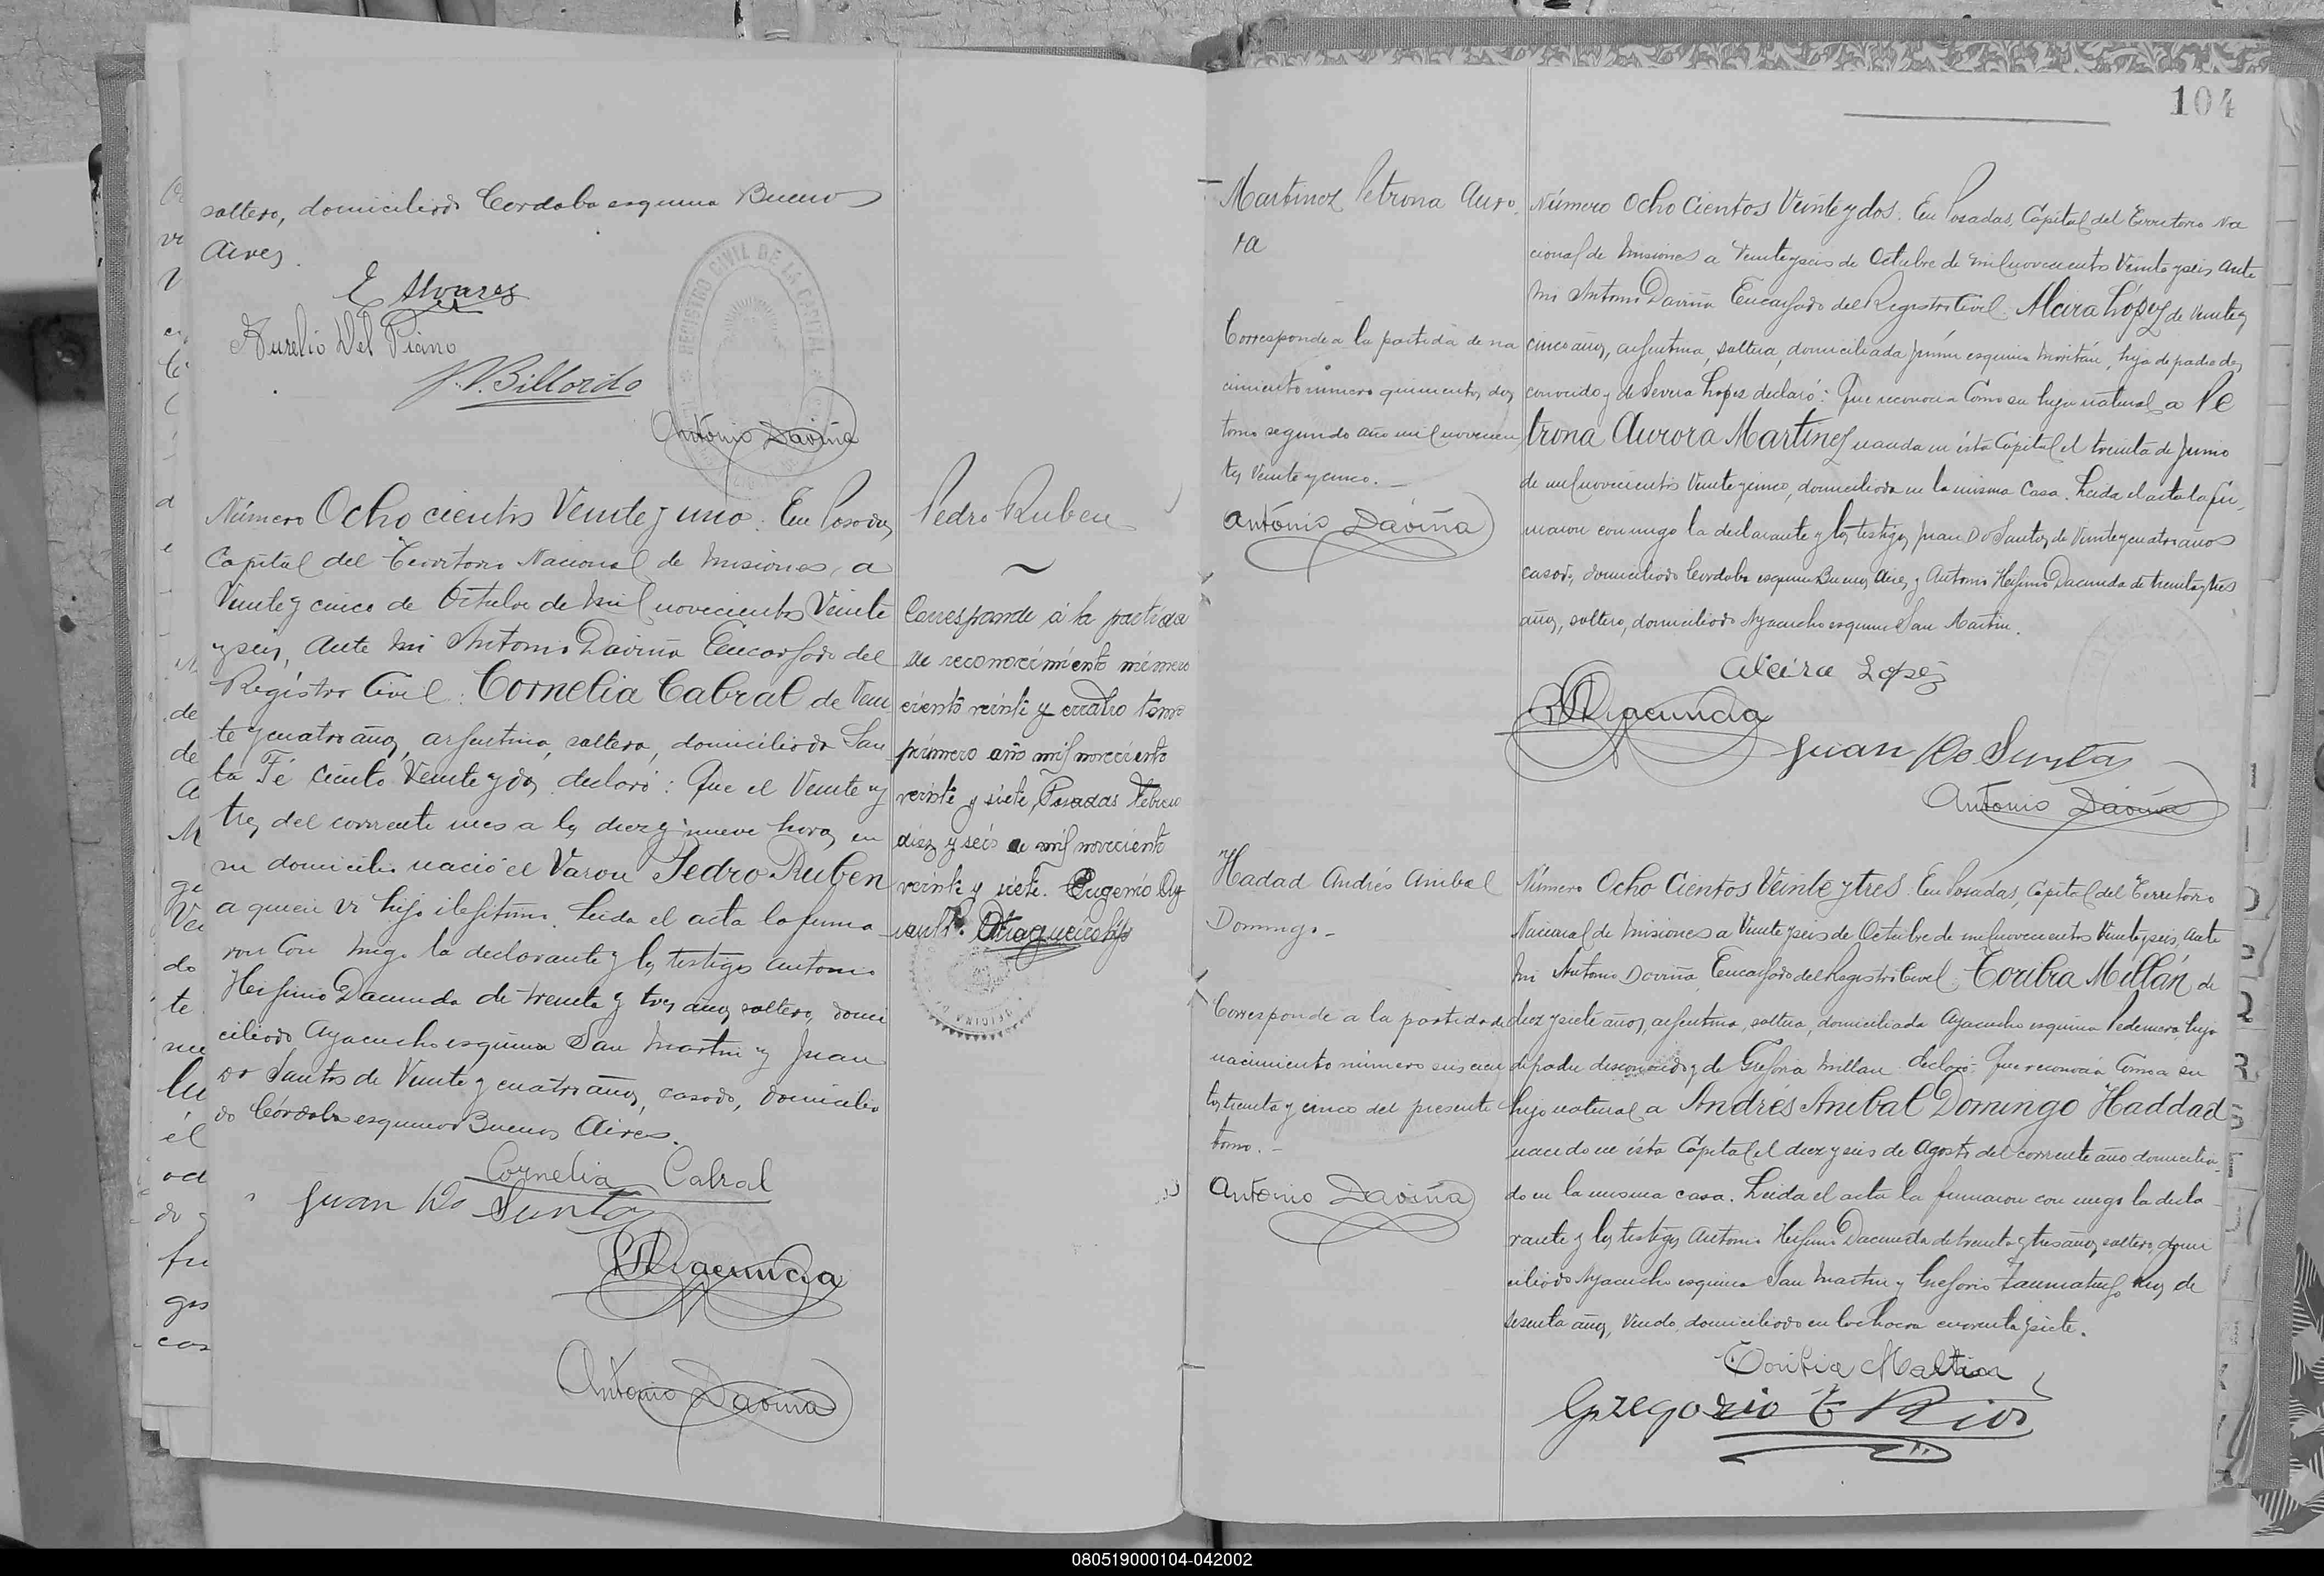 soltero, domiciliado Cordoba esquina Buenos
Aires.
E Alvarez
Aurelio Del Piano
J. V. Billordo
Antonio Daviña
REGISTRO CIVIL DE LA CAPITAL
Número Ocho cientos Veinte y uno: En Posadas,
Capital del Territorio Nacional de Misiones, a
Veinte y cinco de Octubre de mil novecientos Veinte
y seis, Ante mi Antonio Daviña Encargado del
Registro Civil: Cornelia Cabral de Vein
te y cuatro años, argentina, soltera, domiciliada San
ta Fé ciento Veinte y dos, declaró: Que el Veinte y
tres del corriente mes a las diez y nueve horas, en
su domicilio nació el Varon Pedro Ruben
a quien vi hijo ilegítimo. Leida el acta la firma
ron con migo la declarante y los testigos Antonio
Dacunda de treinta y tres años, soltero, domi
ciliado Ayacucho esquina San Martin y Juan
Do Santos de Veinte y cuatro años, casado, domicilia
do Córdoba esquina Buenos Aires.
Cornelia Cabral
Juan Do Santos
Dacunda
Antonio Daviña
Pedro Ruben
~
Corresponde á la partida
de reconocimiento número
ciento veinte y cuatro tomo
primero año mil novecientos
veinte y siete, Posadas Febrero
diez y seis de mil novecientos
veinte y siete. Eugenio
104
Martinez Petrona Auro
ra
Corresponde a la partida de na
cimiento número quinientos dos
tomo segundo año mil novecien
tos Veinte y cinco.-
Antonio Daviña
Número Ocho Cientos Veinte y dos: En Posadas, Capital del Territorio Na
cional de Misiones a Veinte y seis de Octubre de mil novecientos Veinte y seis, Ante
mi Antonio Daviña Encargado del Registro Civil: Alcira López de Veinte y
cinco años, argentina, soltera, domiciliada Junin esquina, hija de padre des
conocido y de Severa Lopez declaró: Que reconocia como su hija natural a Pe
trona Aurora Martinez nacida en ésta Capital el treinta de Junio
de mil novecientos Veinte y cinco, domiciliada en la misma Casa. Leida el acta la fir
maron con migo la declarante y los testigos Juan Do Santos de Veinte y cuatro años
casado, domiciliado Córdoba esquina Buenos Aires, y Antonio Dacunda de treinta y tres
años, soltero, domiciliado Ayacucho esquina San Martin.
Alcira Lopez
Dacunda
Juan Do Santos
Antonio Daviña
Hadad Andrés Anibal
Domingo.-
Corresponde a la partida de
nacimiento número seis cien
tos treinta y cinco del presente
tomo.-
Antonio Daviña
Número Ocho Cientos Veinte y tres: En Posadas, Capital del Territorio
Nacional de Misiones a Veinte y seis de Octubre de mil novecientos Veinte y seis, Ante
mi Antonio Daviña Encargado del Registro Civil: Toribia Millán de
diez y siete años, argentina, soltera, domiciliada Ayacucho esquina Pedernera, hija
de padre desconocido y de Gregoria Millan declaró: Que reconocia Como a su
hijo natural a Andrés Anibal Domingo Haddad
nacido en ésta Capital el diez y seis de Agosto del corriente año domicilia
do en la misma casa. Leida el acta la firmaron con migo la decla
rante y los testigos Antonio Dacunda de treinta y tres años, soltero, domi
ciliado Ayacucho esquina San Martin y Gregorio Taumaturgo Rios de
sesenta años, Viudo, domiciliado en la chacra cuarenta y siete.
Toribia Millan
Gregorio T Rios
080519000104-042002